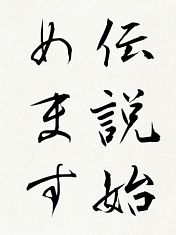 伝説始
めます